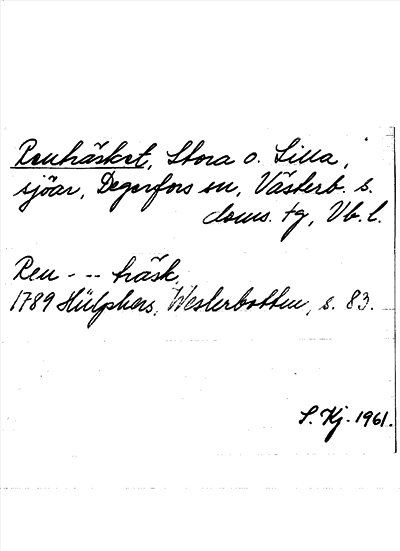 Renträsket, Stora o. Lilla,
sjöar, Degerfors sn, Västerb. s.
doms. tg, Vb. l.
Ren - -- träsk,
1789 Hülphers, Westerbotten, s. 83.
S. Kj. 1961.